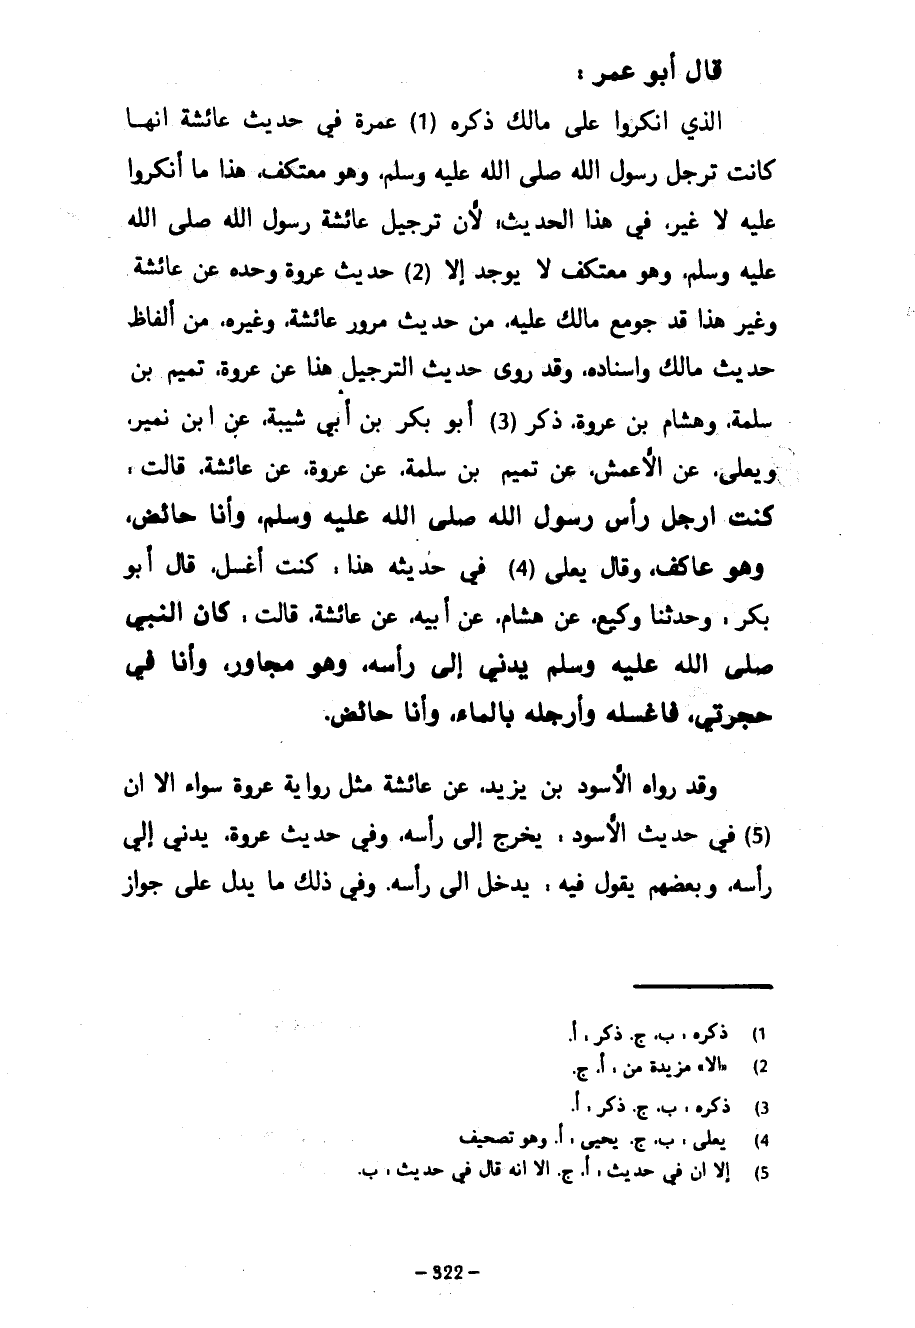 قال أبو عمر :
الذي انكروا على مالك ذكره (1) عمرة في حديث عائشة انهـا
كانت ترجل رسول الله صلى الله عليه وسلم، وهو معتكف، هذا ما أنكروا
عليه لا غير، في هذا الحديث؛ لأن ترجيل عائشة رسول الله صلى الله
عليه وسلم، وهو معتكف لا يوجد إلا (2) حديث عروة وحده عن عائشة
وغير هذا قد جومع مالك عليه، من حديث مرور عائشة، وغيره، من ألفاظ
حديث مالك واسناده، وقد روى حديث الترجيل هذا عن عروة، تميم بن
سلمة، وهشام بن عروة، ذكر (3) أبو بكر بن أبي شيبة، عن ابن نمير،
ويعلى، عن الأعمش، عن تميم بن سلمة، عن عروة، عن عائشة، قالت :
كنت ارجل رأس رسول الله صلى الله عليه وسلم، وأنا حائض،
وهو عاكف، وقال يعلى (4) في حديثه هذا : كنت أغسل، قال أبو
بكر : وحدثنا وكيع، عن هشام، عن أبيه، عن عائشة، قالت : كان النبي
صلى الله عليه وسلم يدني إلى رأسه، وهو مجاور، وأنا في
حجرتي، فاغسله وأرجله بالماء، وأنا حائض.
وقد رواه الأسود بن يزيد، عن عائشة مثل رواية عروة سواء الا ان
(5) في حديث الأسود : يخرج إلى رأسه، وفي حديث عروة، يدني إلي
رأسه، وبعضهم يقول فيه : يدخل الى رأسه. وفي ذلك ما يدل على جواز
1) ذكره : ب، ج. ذكر : أ.
2) «الا» مزيدة من : أ، ج.
3) ذكره : ب، ج. ذكر : أ.
4) يعلى : ب، ج. يحيى : أ. وهو تصحيف
5) إلا ان في حديث : أ، ج. الا انه قال في حديث : ب.
– 322 –